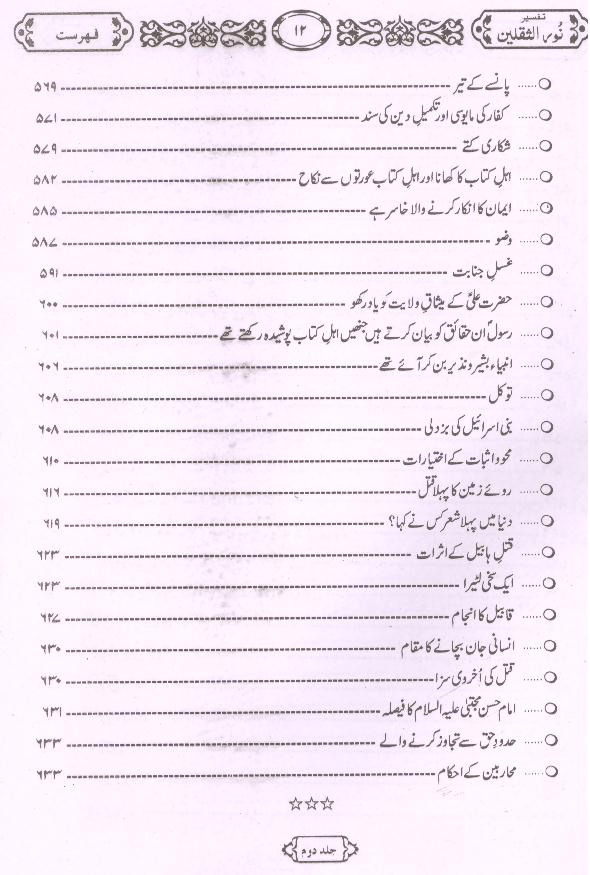 تفسیر
نُور الثقلین
۱۲
فہرست
پانسے کے تیر ۵۶۹
کفار کی مایوسی اور تکمیلِ دین کی سند ۵۷۱
شکاری کتے ۵۷۹
اہلِ کتاب کا کھانا اور اہلِ کتاب عورتوں سے نکاح ۵۸۲
ایمان کا انکار کرنے والا خاسر ہے ۵۸۵
وضو ۵۸۷
غسلِ جنابت ۵۹۱
حضرت علیؑ کے میثاقِ ولایت کو یاد رکھو ۶۰۰
رسولؐ ان حقائق کو بیان کرتے ہیں جنھیں اہلِ کتاب پوشیدہ رکھتے تھے ۶۰۱
انبیاء بشیر و نذیر بن کر آئے تھے ۶۰۶
توکل ۶۰۸
بنی اسرائیل کی بزدلی ۶۰۸
محو و اثبات کے اختیارات ۶۱۰
روئے زمین کا پہلا قتل ۶۱۶
دنیا میں پہلا شعر کس نے کہا؟ ۶۱۹
قتلِ ہابیل کے اثرات ۶۲۳
ایک سخی لٹیرا ۶۲۳
قابیل کا انجام ۶۲۷
انسانی جان بچانے کا مقام ۶۳۰
قتل کی اُخروی سزا ۶۳۰
امام حسن مجتبیٰ علیہ السلام کا فیصلہ ۶۳۱
حدودِ حق سے تجاوز کرنے والے ۶۳۳
محاربین کے احکام ۶۳۳
☆☆☆
جلد دوم